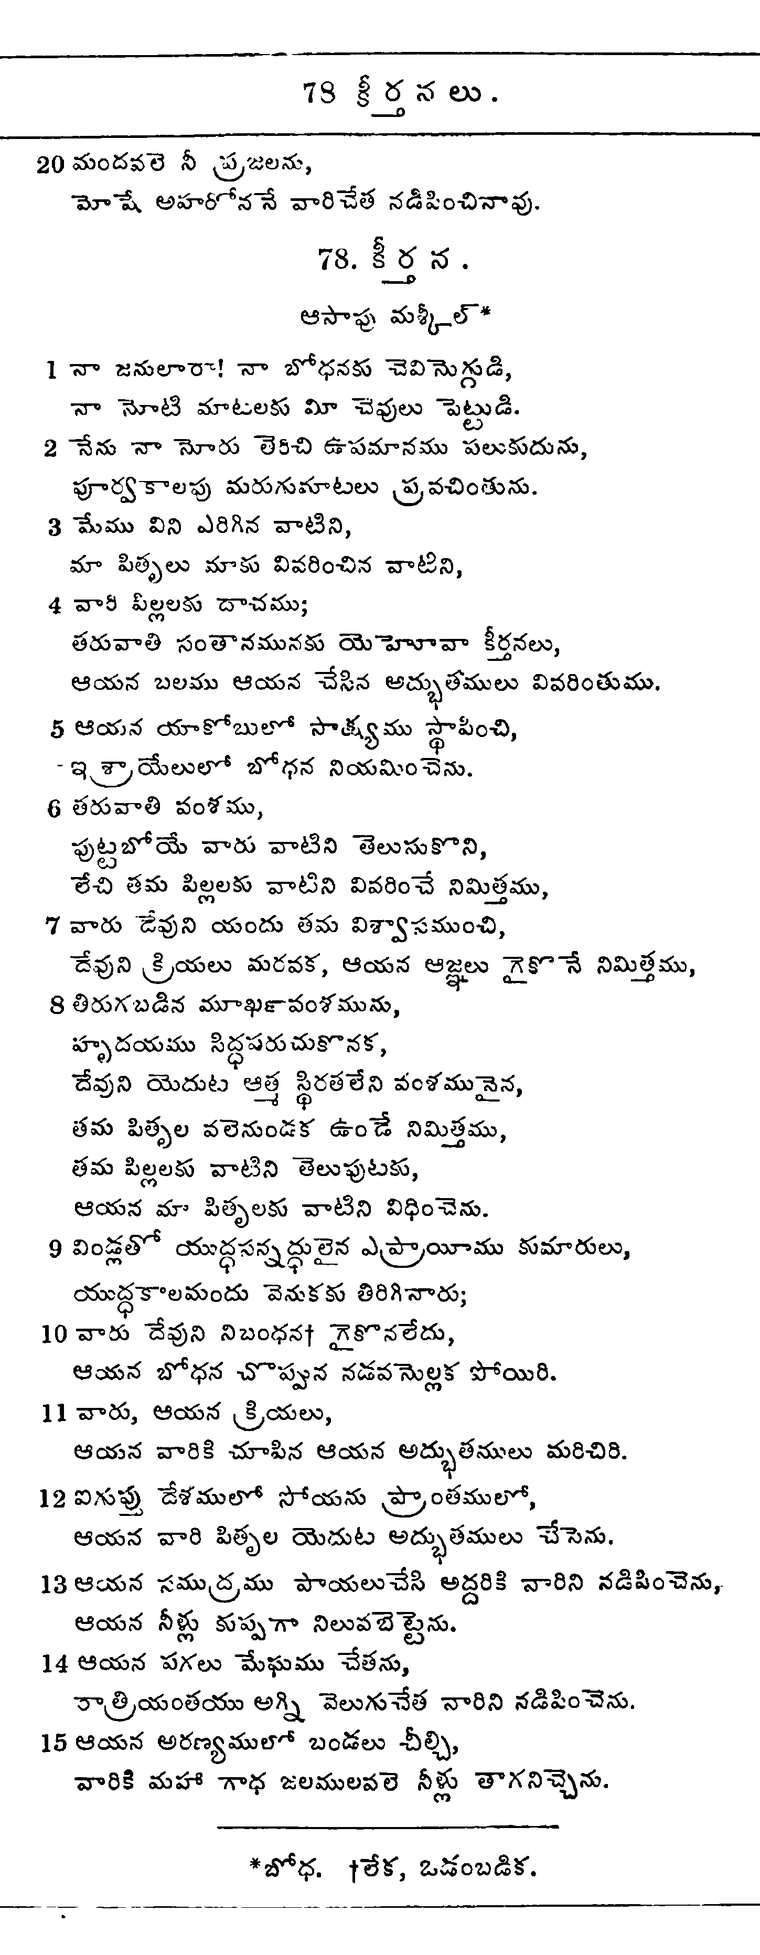 78 కీర్తనలు.
20 మందవలె నీ ప్రజలను,
మోషే అహరోననే వారిచేత నడిపించినావు.
78. కీర్తన.
ఆసాఫు మశ్కీల్*
1 నా జనులారా! నా బోధనకు చెవియొగ్గుడి,
నా నోటి మాటలకు మీ చెవులు పెట్టుడి.
2 నేను నా నోరు తెరిచి ఉపమానము పలుకుదును,
పూర్వకాలపు మరుగుమాటలు ప్రవచింతును.
3 మేము విని ఎరిగిన వాటిని,
మా పితృలు మాకు వివరించిన వాటిని,
4 వారి పిల్లలకు దాచము;
తరువాతి సంతానమునకు యెహోవా కీర్తనలు,
ఆయన బలము ఆయన చేసిన అద్భుతములు వివరింతుము.
5 ఆయన యాకోబులో సాక్ష్యము స్థాపించి,
ఇశ్రాయేలులో బోధన నియమించెను.
6 తరువాతి వంశము,
పుట్టబోయే వారు వాటిని తెలుసుకొని,
లేచి తమ పిల్లలకు వాటిని వివరించే నిమిత్తము,
7 వారు దేవుని యందు తమ విశ్వాసముంచి,
దేవుని క్రియలు మరవక, ఆయన ఆజ్ఞలు గైకొనే నిమిత్తము,
8 తిరుగబడిన మూఖ౯వంశమును,
హృదయము సిద్ధపరుచుకొనక,
దేవుని యెదుట ఆత్మ స్థిరతలేని వంశమునైన,
తమ పితృల వలెనుండక ఉండే నిమిత్తము,
తమ పిల్లలకు వాటిని తెలుపుటకు,
ఆయన మా పితృలకు వాటిని విధించెను.
9 విండ్లతో యుద్ధసన్నద్ధులైన ఎప్రాయీము కుమారులు,
యుద్ధకాలమందు వెనుకకు తిరిగినారు;
10 వారు దేవుని నిబంధన† గైకొనలేదు,
ఆయన బోధన చొప్పున నడవనొల్లక పోయిరి.
11 వారు, ఆయన క్రియలు,
ఆయన వారికి చూపిన ఆయన అద్భుతములు మరిచిరి.
12 ఐగుప్తు దేశములో సోయను ప్రాంతములో,
ఆయన వారి పితృల యెదుట అద్భుతములు చేసెను.
13 ఆయన సముద్రము పాయలుచేసి అద్దరికి వారిని నడిపించెను,
ఆయన నీళ్లు కుప్పగా నిలువబెట్టెను.
14 ఆయన పగలు మేఘము చేతను,
రాత్రియంతయు అగ్ని వెలుగుచేత వారిని నడిపించెను.
15 ఆయన అరణ్యములో బండలు చీల్చి,
వారికి మహా గాధ జలములవలె నీళ్లు తాగనిచ్చెను.
*బోధ. †లేక, ఒడంబడిక.